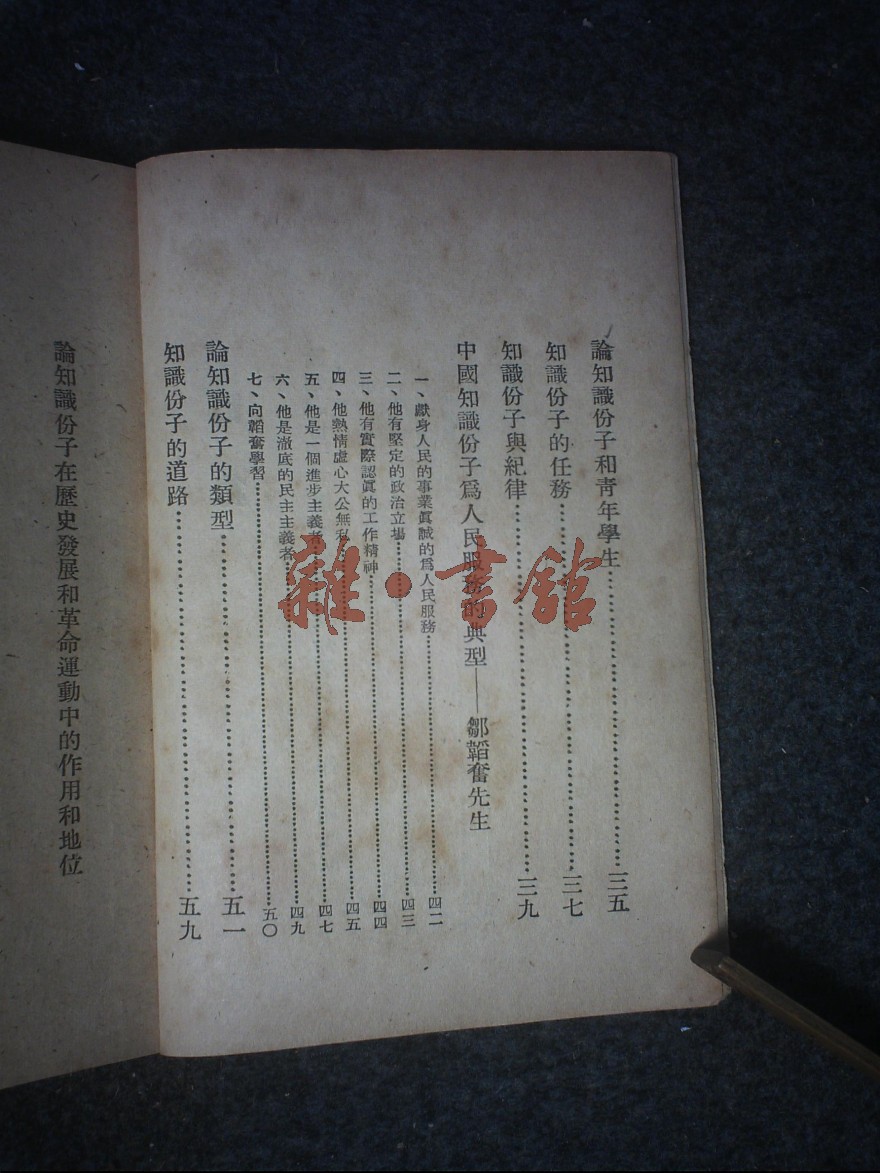 論知識份子和青年學生……三五
知識份子的任務……三七
知識份子與紀律……三九
中國知識份子爲人民服務的典型——鄒韜奮先生
一、獻身人民的事業眞誠的爲人民服務……四二
二、他有堅定的政治立場……四三
三、他有實際認眞的工作精神……四四
四、他熱情虛心大公無私……四五
五、他是一個進步主義者……四七
六、他是澈底的民主主義者……四九
七、向韜奮學習……五〇
論知識份子的類型……五一
知識份子的道路……五九
論知識份子在歷史發展和革命運動中的作用和地位
雜·書館